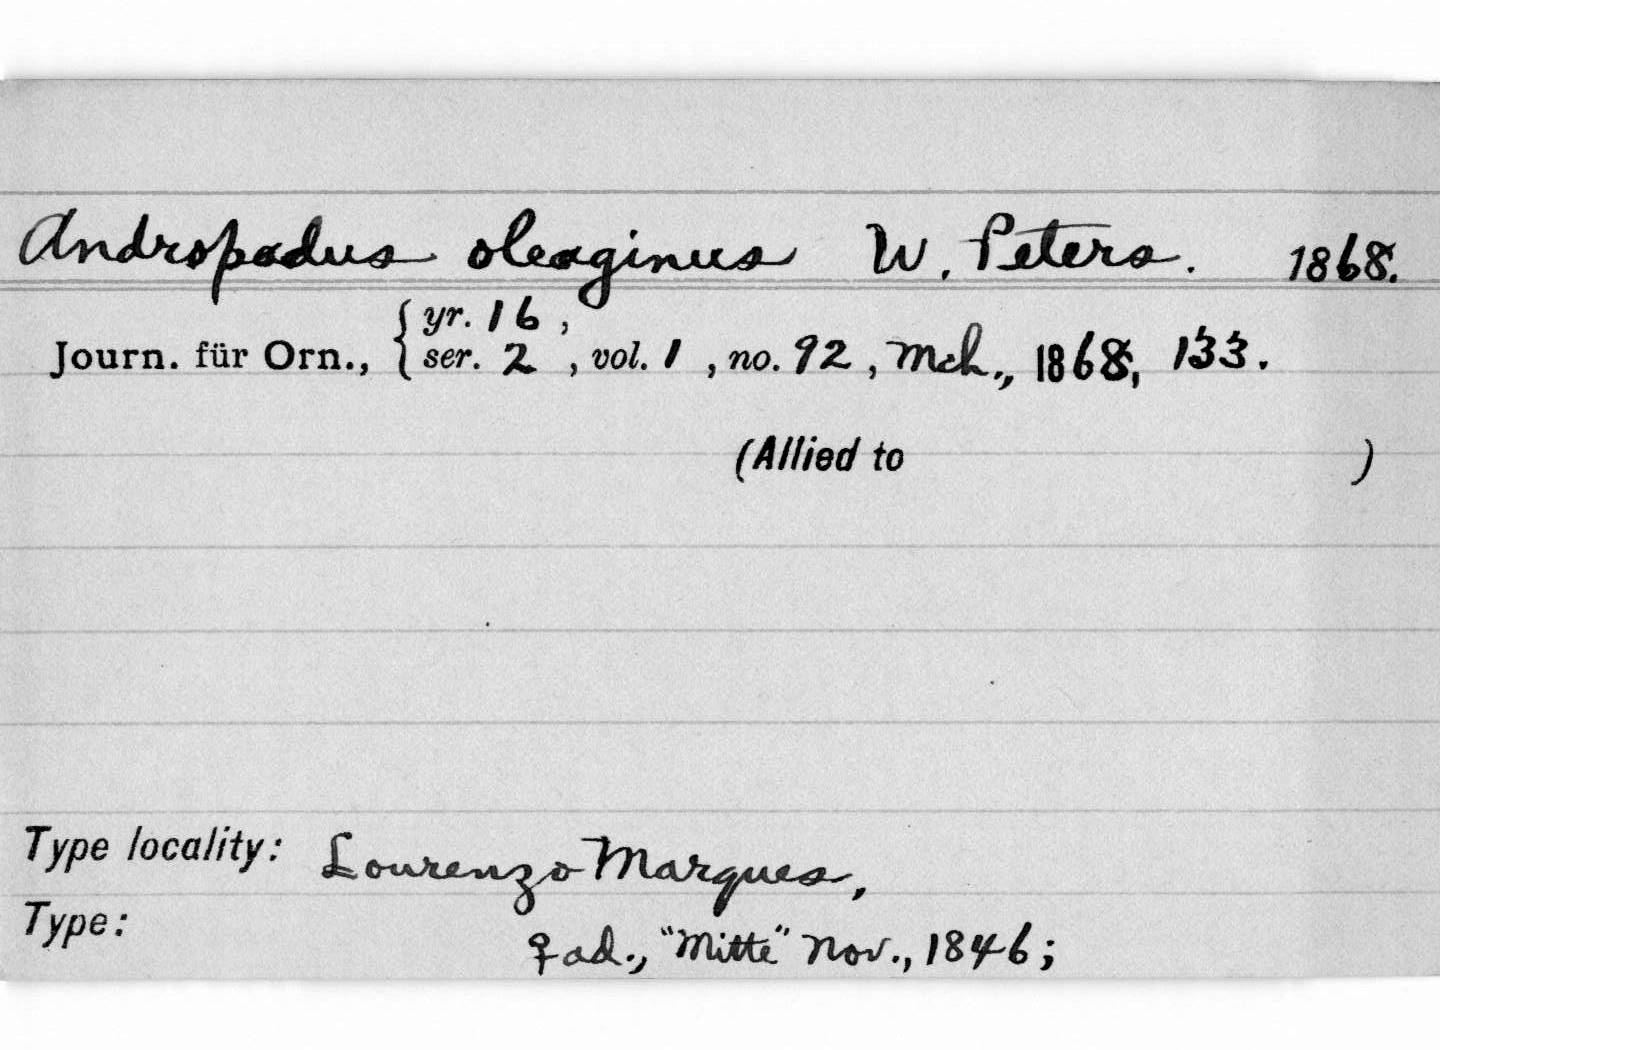 Andropadus oleaginus W. Peters. 1868.
Journ. für Orn., { yr. 16 ,
ser. 2 , vol. 1 , no. 92 , Mch., 1868, 133.
(Allied to )
Type locality: Lourenzo Marques,
Type:
♀ ad., "Mitte" Nov., 1846;